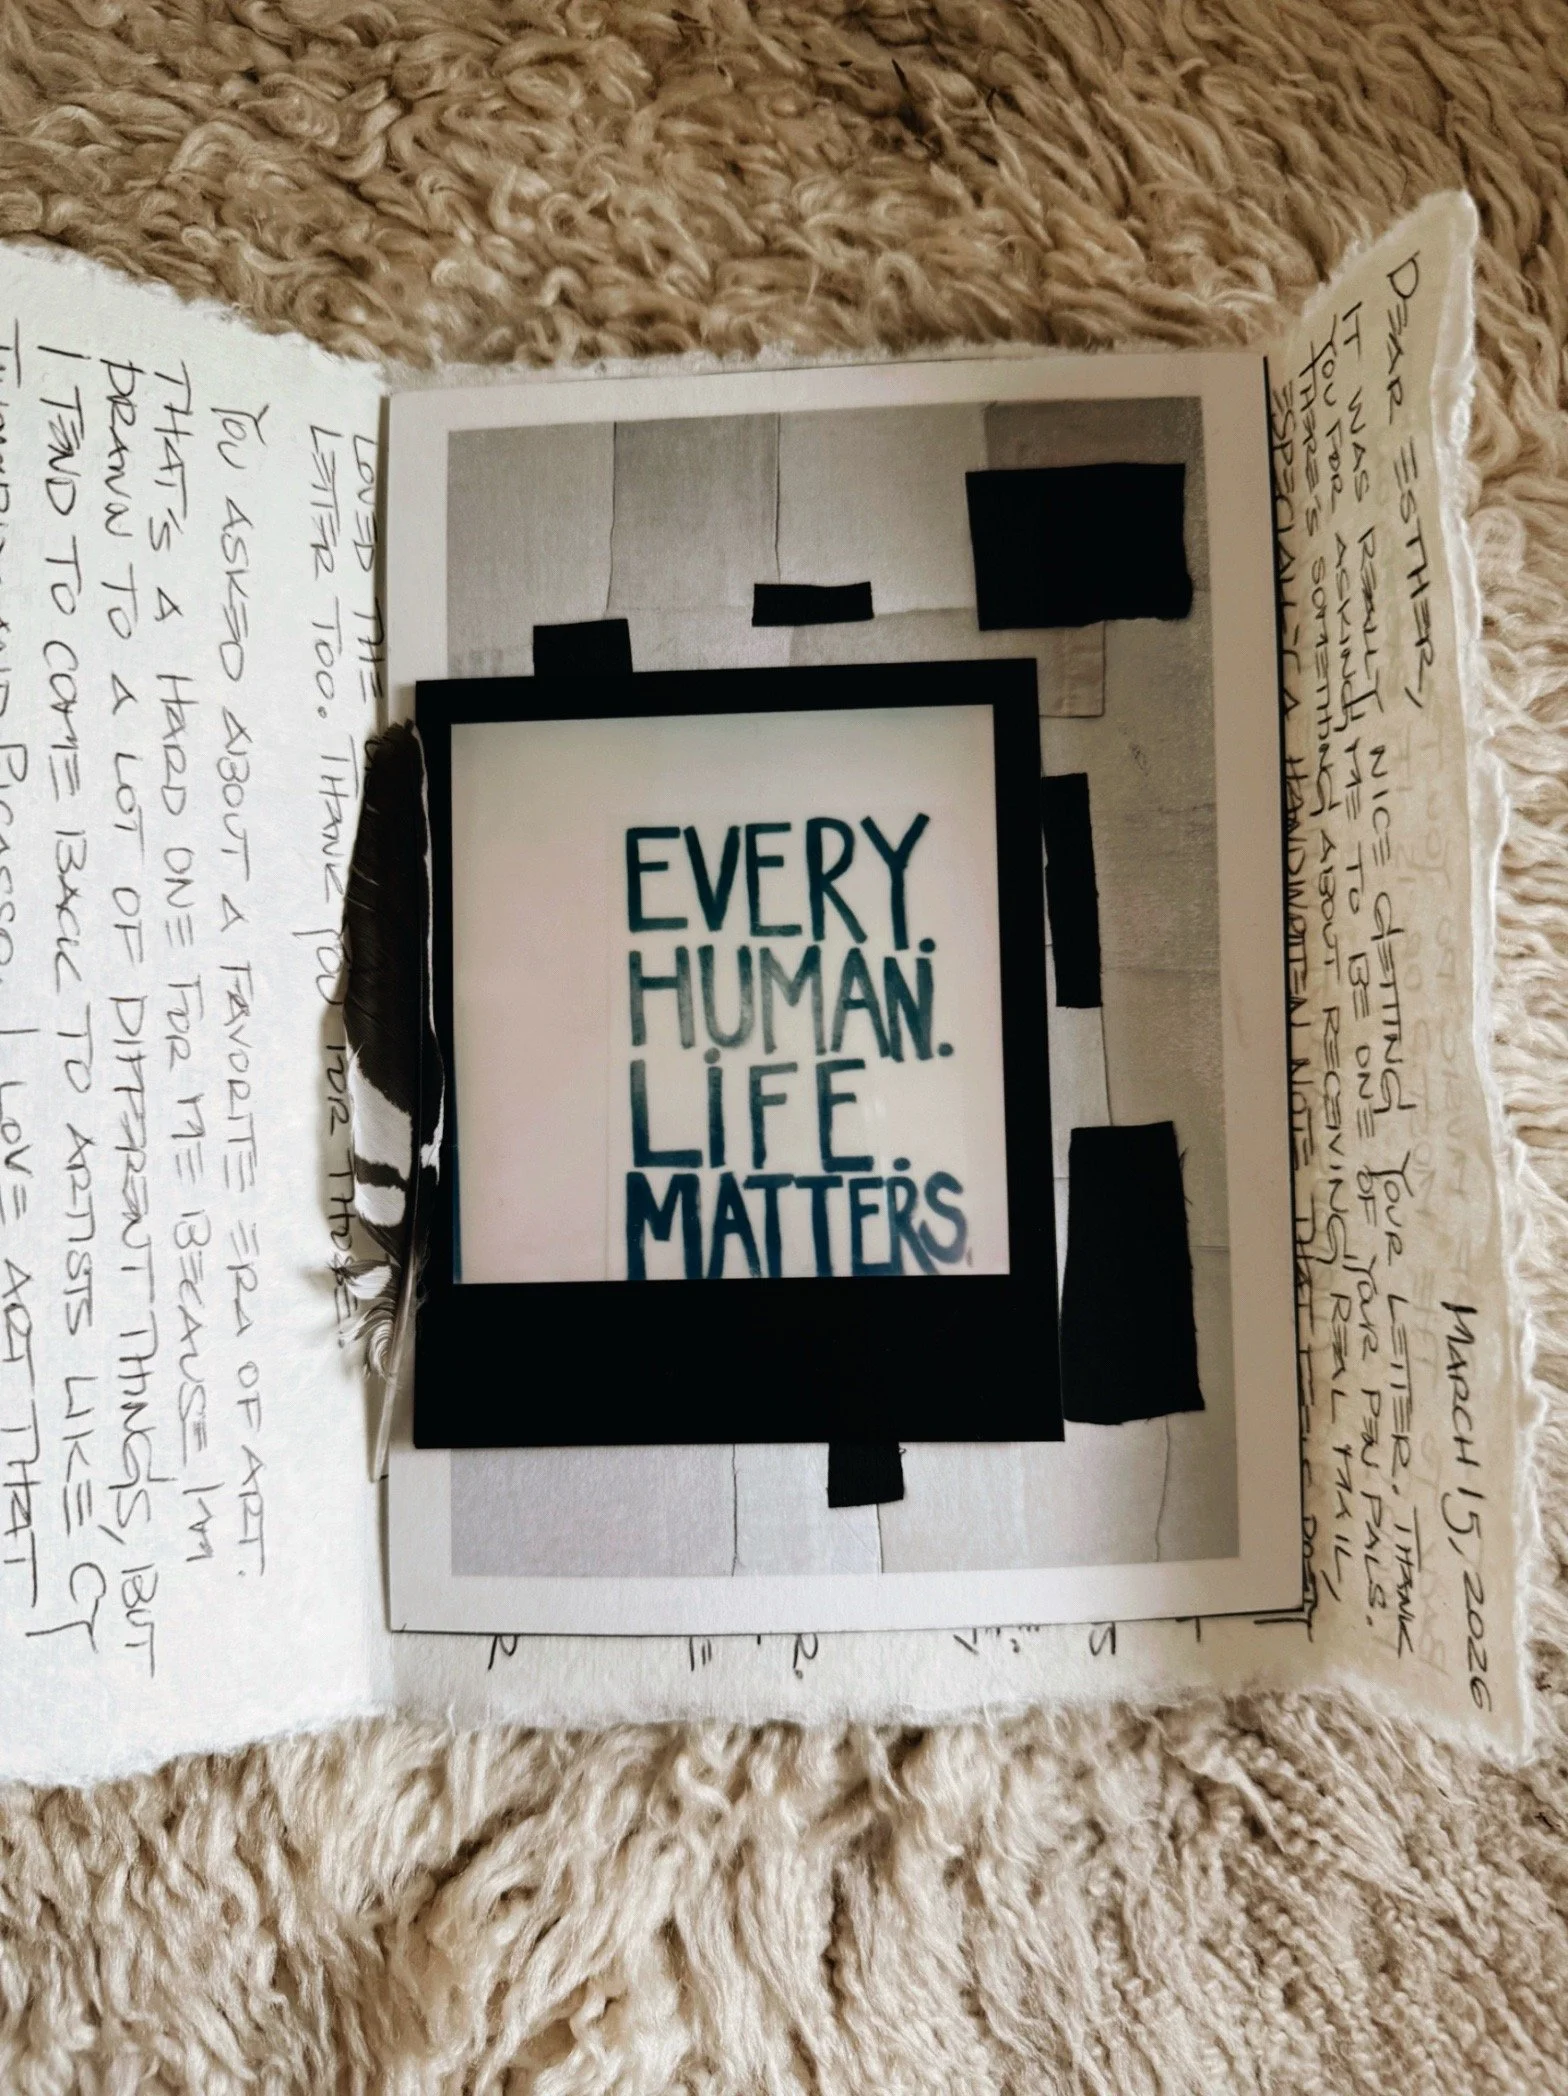 MARCH 15, 2026
DEAR ESTHER,
IT WAS REALLY NICE GETTING YOUR LETTER. THANK
YOU FOR ASKING ME TO BE ONE OF YOUR PEN PALS.
THERE'S SOMETHING ABOUT RECEIVING REAL MAIL,
ESPECIALLY A HANDWRITTEN NOTE THAT
EVERY.
HUMAN.
LIFE.
MATTERS.
LOVED THE
LETTER TOO. THANK YOU FOR THOSE.
YOU ASKED ABOUT A FAVORITE ERA OF ART.
THAT'S A HARD ONE FOR ME BECAUSE I'M
DRAWN TO A LOT OF DIFFERENT THINGS, BUT
I TEND TO COME BACK TO ARTISTS LIKE CY
PICASSO. I LOVE ART THAT